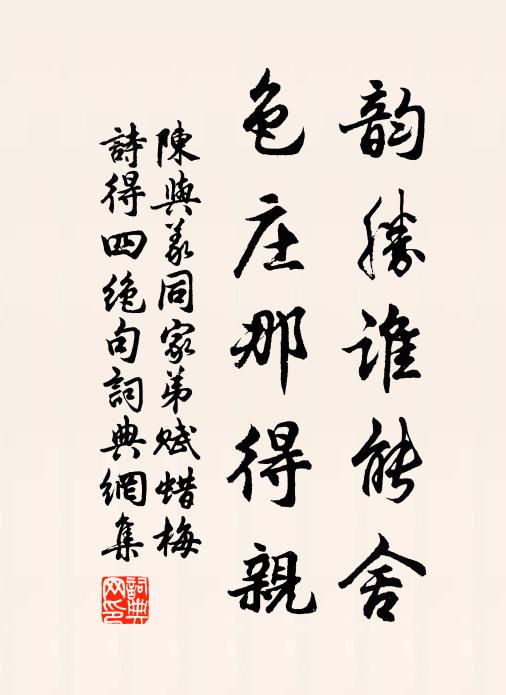 韵勝谁能舍
色庄那得親
陳與義同家弟赋蜡梅
詩得四绝句詞典網集
詞典网印